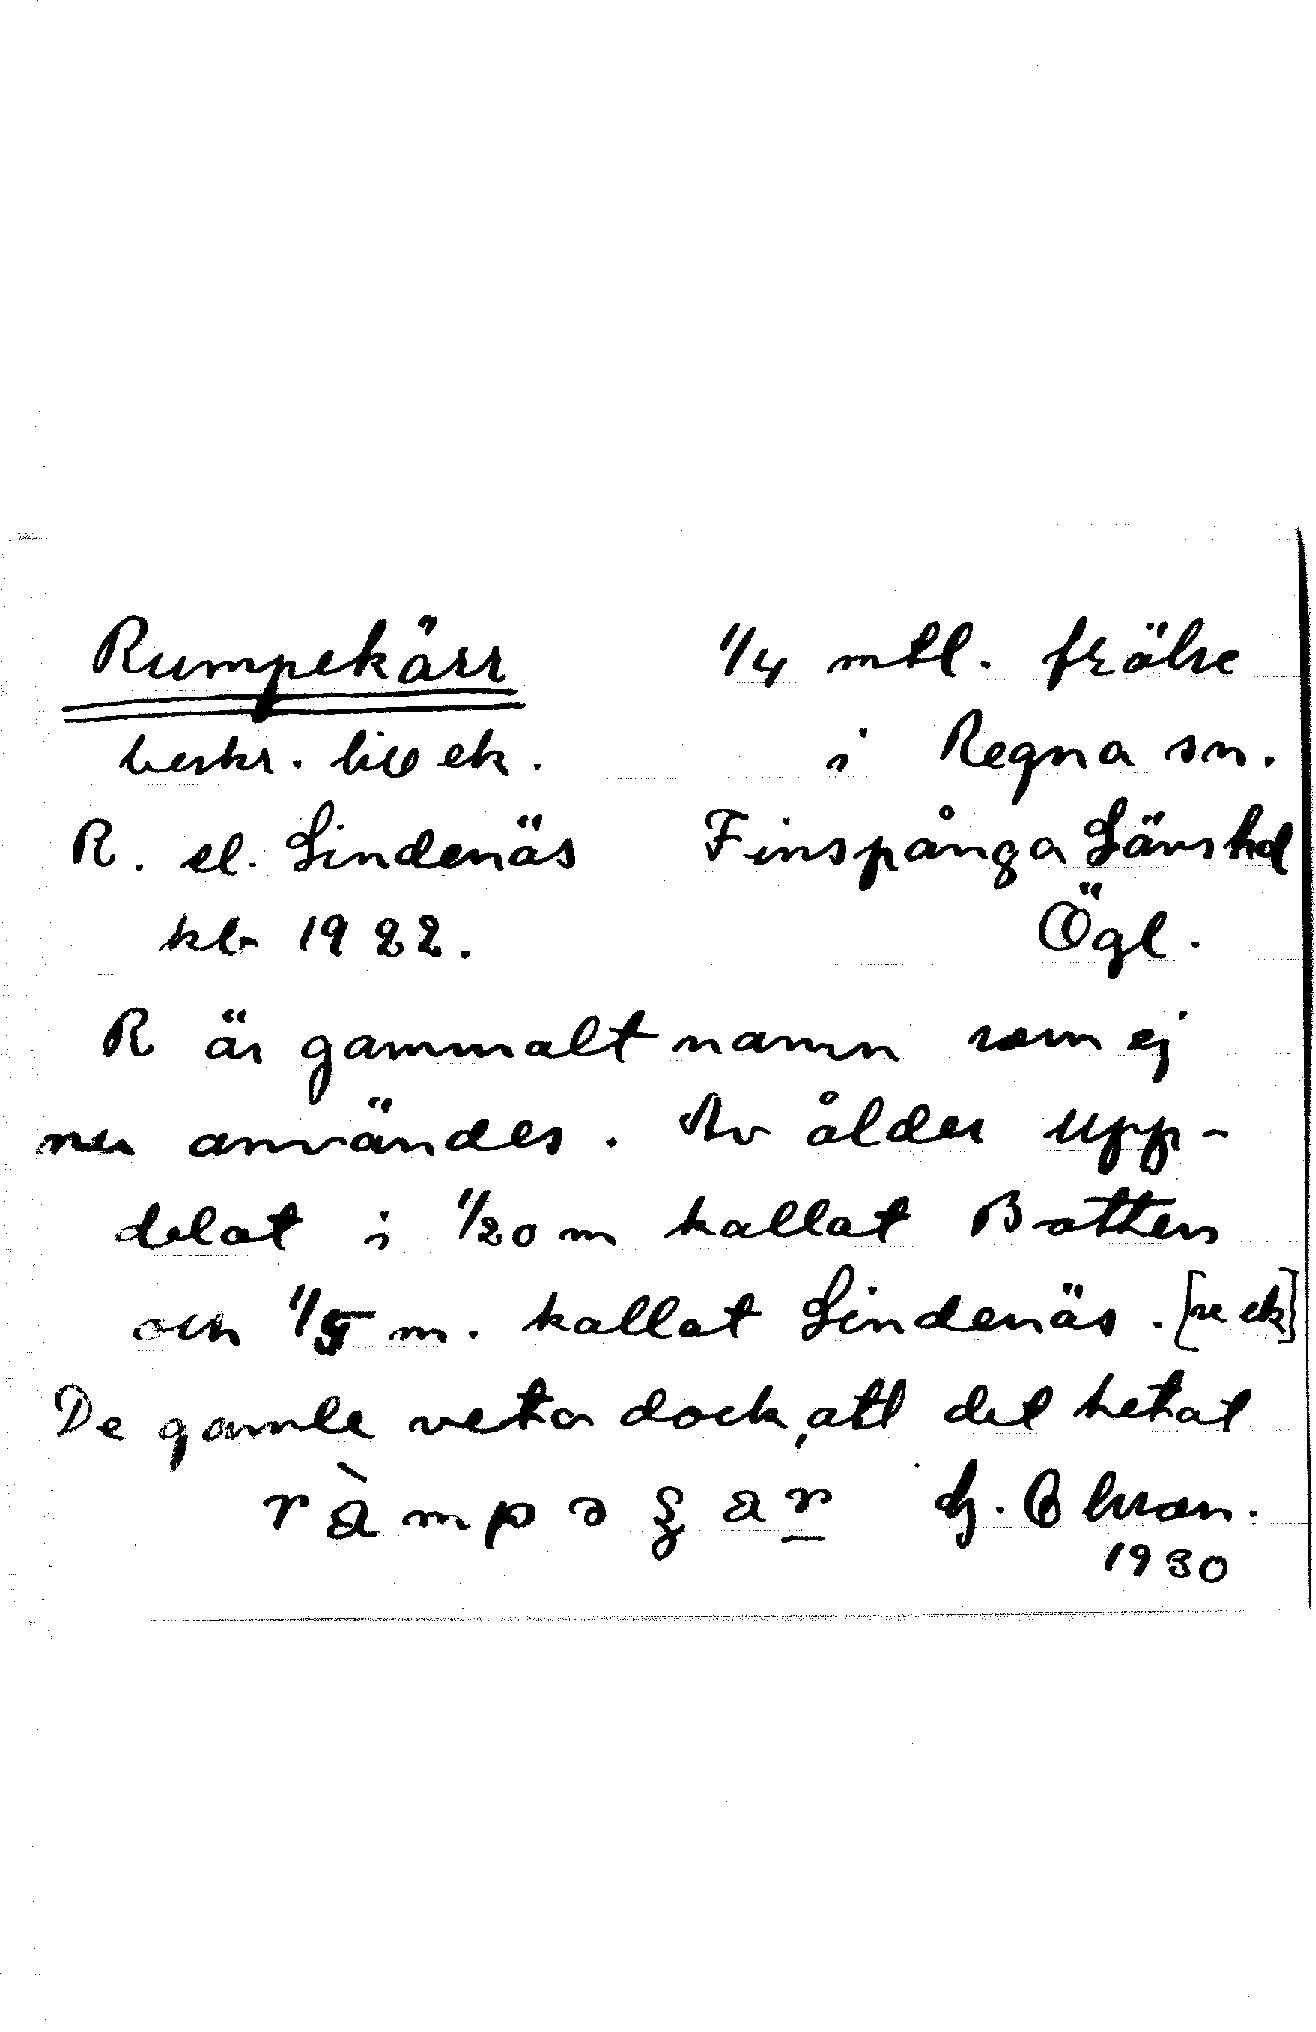 Rumpekärr 1/4 mtl. frälse
beskr. bil ek. i Regna sn.
R. el. Lindenäs Finspånga Länshd
kb 1922. Ögl.
R är gammalt namn som ej
mer användes. Av ålder upp-
delat i 1/20 m kallat Botten
och 1/5 m. kallat Lindenäs. [se ek]
De gamle veta dock, att det hetat
1930